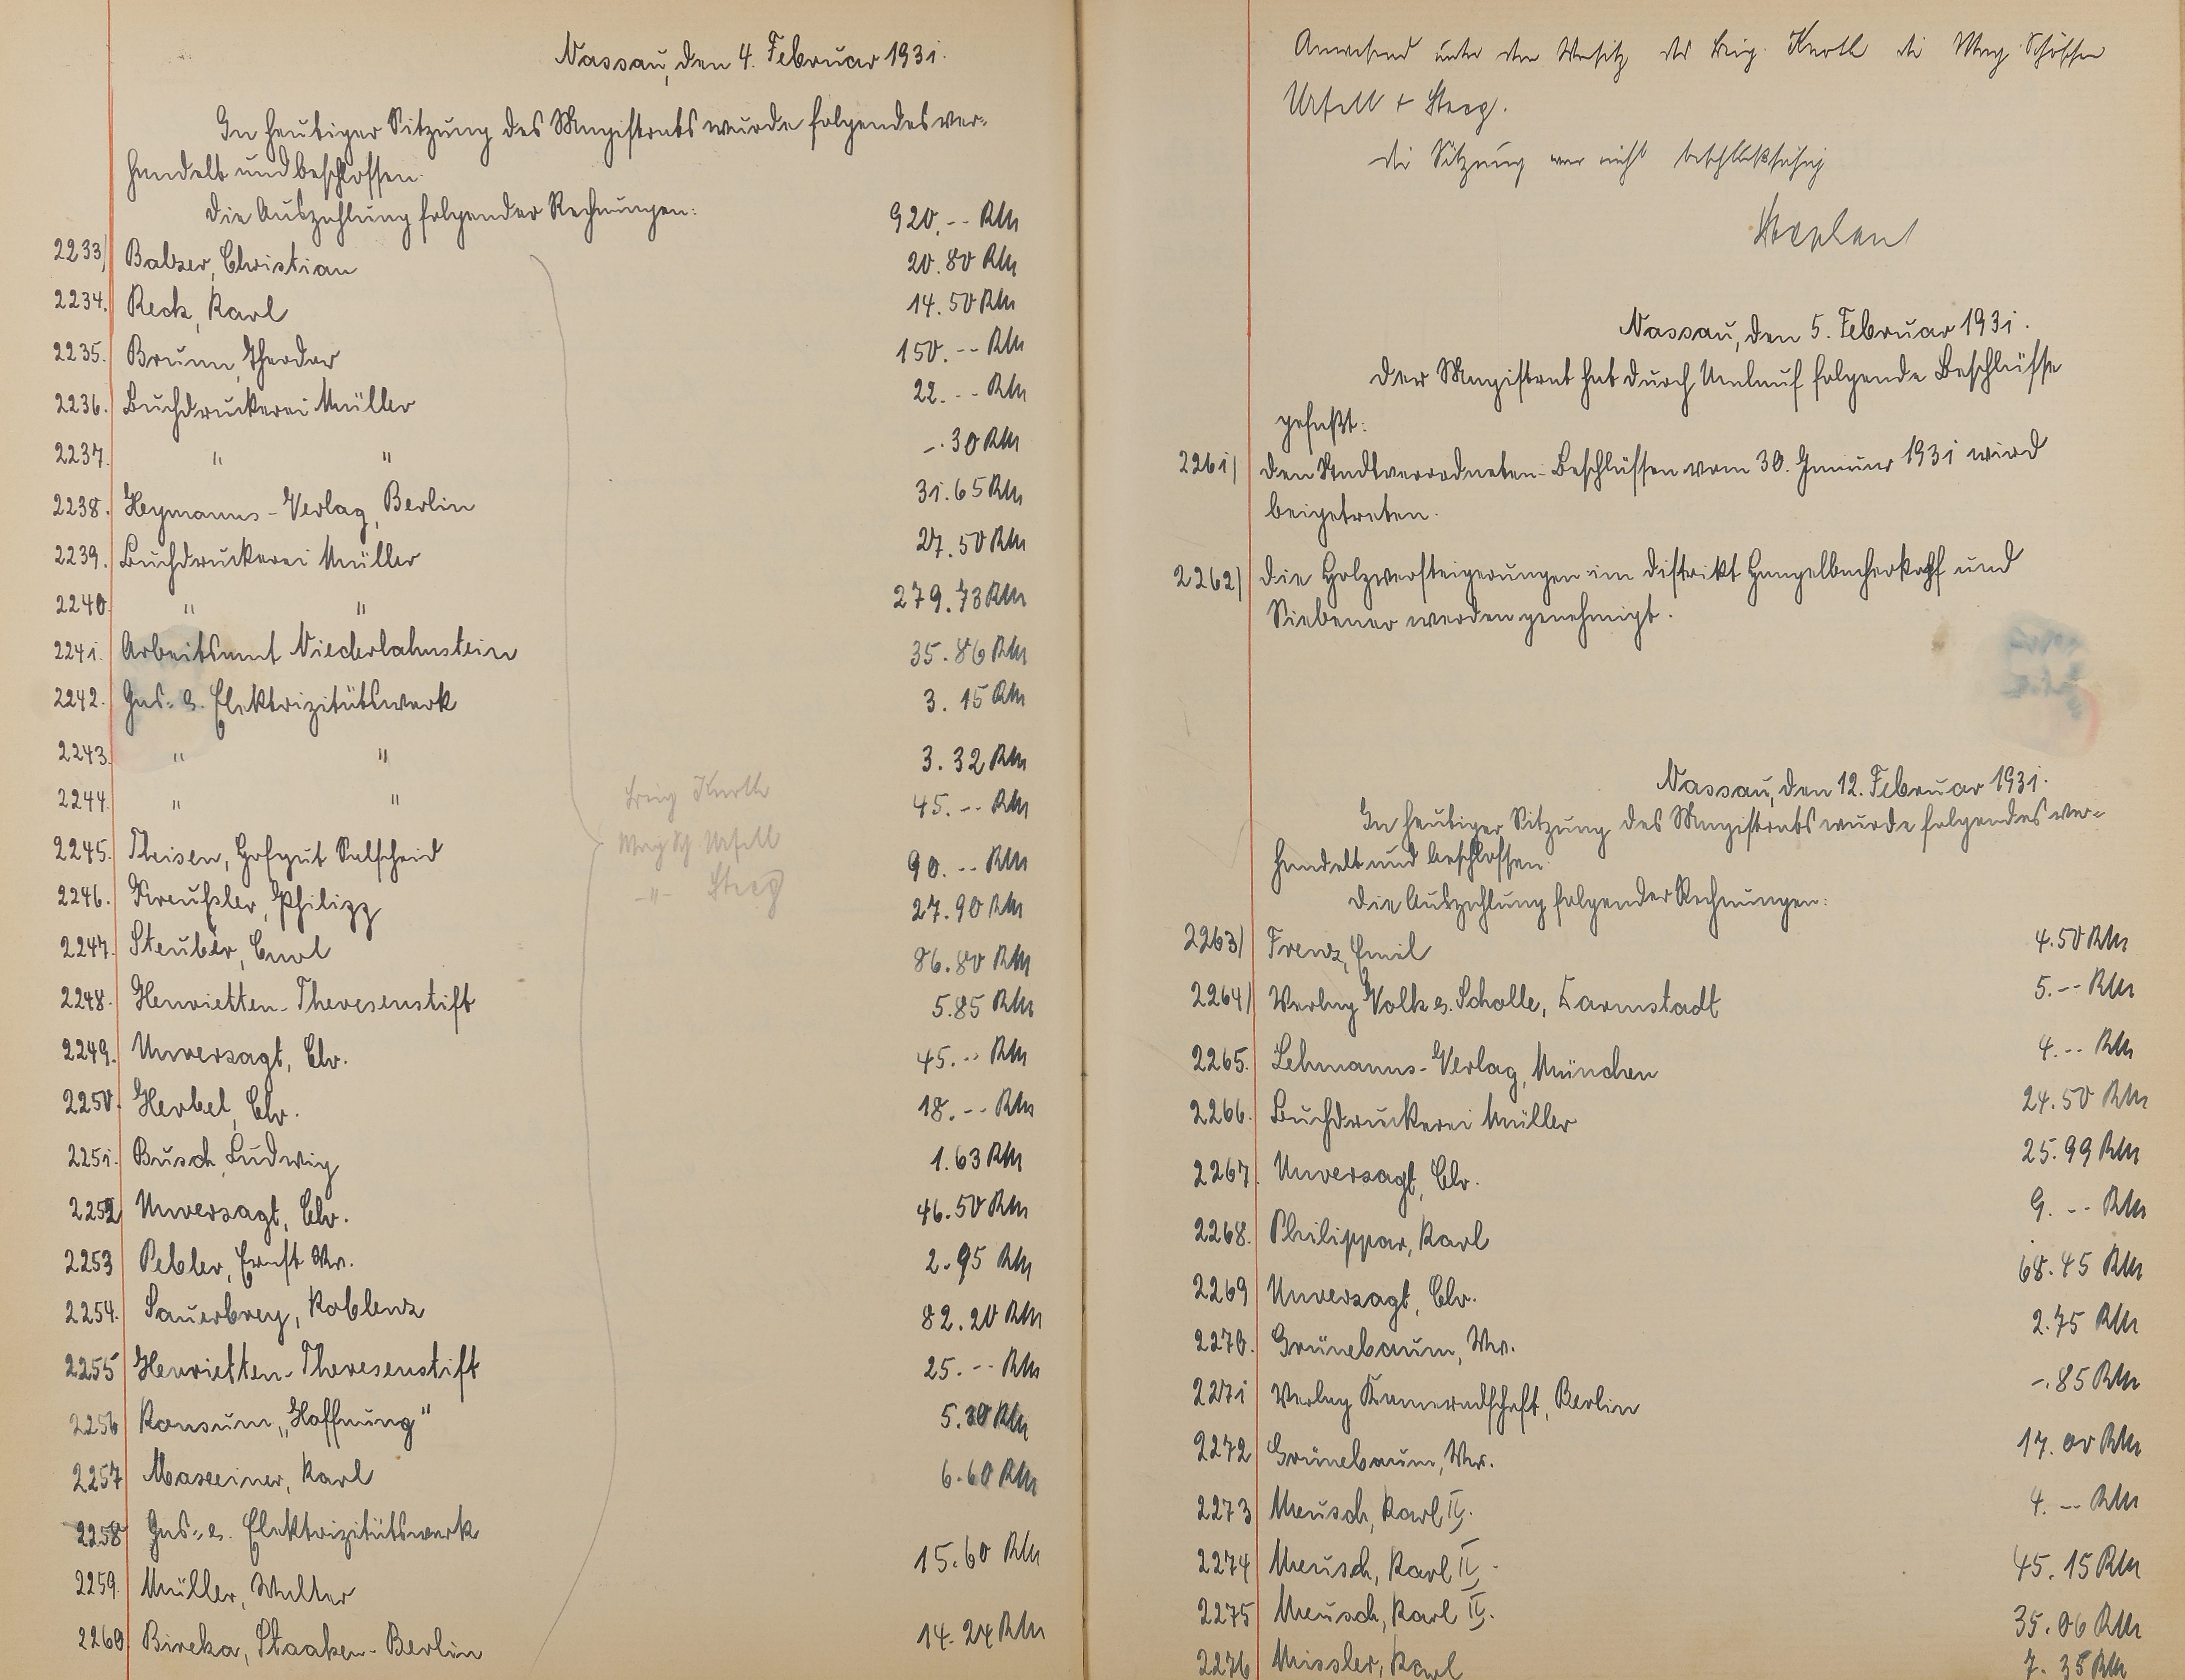 Nassau, den 4. Februar 1931.
In heutiger Sitzung des Magistrats wurde folgendes ver-
handelt und beschlossen.
Die Auszahlung folgender Rechnungen:
2233) Balzer, Christian 920.-- RM
2234. Reck, Karl 20.80 RM
2235. Brunn, Theodor 14.50 RM
2236. Buchdruckerei Müller 150.-- RM
2237. " " 22.-- RM
2238. Heymanns-Verlag, Berlin -.30 RM
2239. Buchdruckerei Müller 31.65 RM
2240. " " 27.50 RM
2241. Arbeitsamt Niederlahnstein 279.73 RM
2242. Gas- u. Elektrizitätswerk 35.86 RM
2243. " " 3.15 RM
2244. " " 3.32 RM
2245. Theisen, Hofgut Salscheid 45.-- RM
2246. Kreußler, Philipp 90.-- RM
2247. Steuber, Carl 27.90 RM
2248. Henrietten-Theresenstift 86.80 RM
2249. Unverzagt, Chr. 5.85 RM
2250. Herbel, Chr. 45.-- RM
2251. Busch, Ludwig 18.-- RM
2252 Unverzagt, Chr. 1.63 RM
2253 Pebler, Ernst Ww. 46.50 RM
2254. Sauerbrey, Koblenz 2.95 RM
2255 Henrietten-Theresenstift 82.20 RM
2256 Konsum „Hoffnung" 25.-- RM
2257 Masseiner, Karl 5.30 RM
2258 Gas- u. Elektrizitätswerk 6.60 RM
2259. Müller, Walter 15.60 RM
2260 Bireka, Staaken-Berlin 14.24 RM
Beig Kurth
Mag Sch Urfell
-"- Steeg
Anwesend unter dem Vorsitz des Beig. Kurth die Mag. Schöffen
Urfell + Steeg.
Die Sitzung war nicht beschlußfähig
Nassau, den 5. Februar 1931.
Der Magistrat hat durch Umlauf folgende Beschlüsse
gefaßt:
2261) Den Stadtverordneten-Beschlüssen vom 30. Januar 1931 wird
beigetreten.
2262) Die Holzversteigerungen im Distrikt Hangelbacherkopf und
Siebener werden genehmigt.
Nassau, den 12. Februar 1931.
In heutiger Sitzung des Magistrats wurde folgendes ver-
handelt und beschlossen.
Die Auszahlung folgender Rechnungen:
2263) Frenz, Emil 4.50 RM
2264) Verlag Volk u. Scholle, Darmstadt 5.-- RM
2265. Lehmanns-Verlag, München 4.-- RM
2266. Buchdruckerei Müller 24.50 RM
2267. Unverzagt, Chr. 25.99 RM
2268. Philippar, Karl 9.-- RM
2269 Unverzagt, Chr. 68.45 RM
2270. Grünebaum, Ww. 2.75 RM
2271 Verlag Kameradschaft, Berlin -.85 RM
2272 Grünebaum, Ww. 17.00 RM
2273 Meusch, Karl IV. 4.-- RM
2274 Meusch, Karl IV. 45.15 RM
2275 Meusch, Karl IV. 35.06 RM
2276 Missler, Karl 7.35 RM